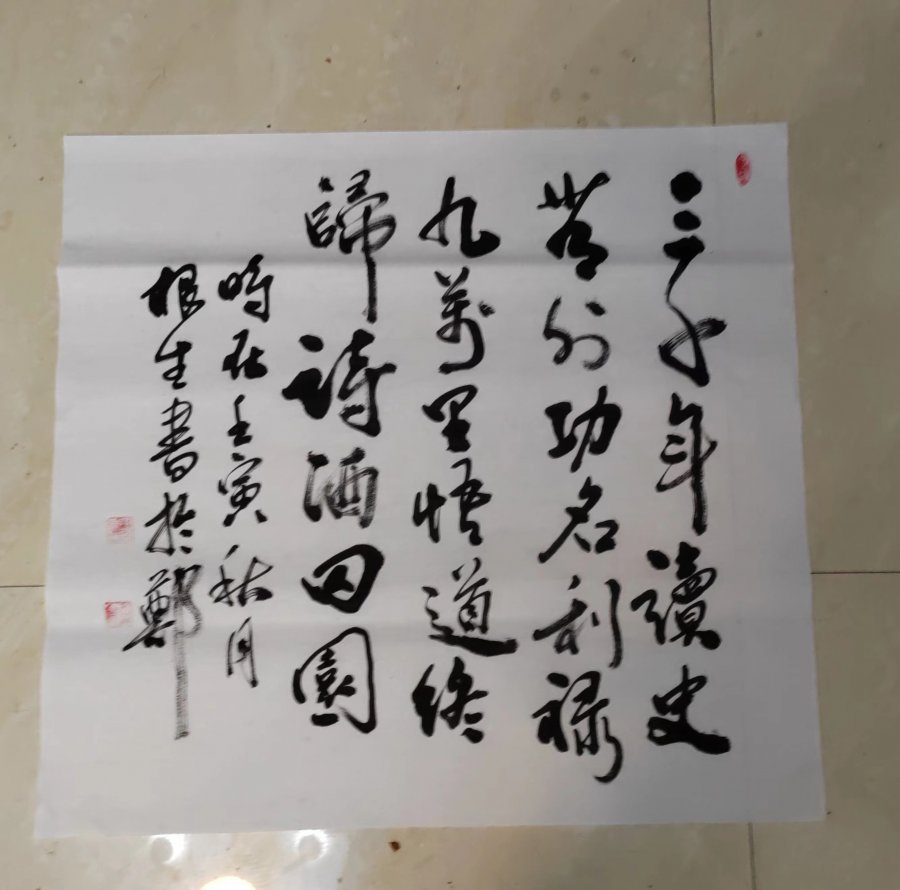 三千年讀史
無外功名利禄
九萬里悟道終
歸詩酒田園
時在壬寅秋月
根生書於鄭